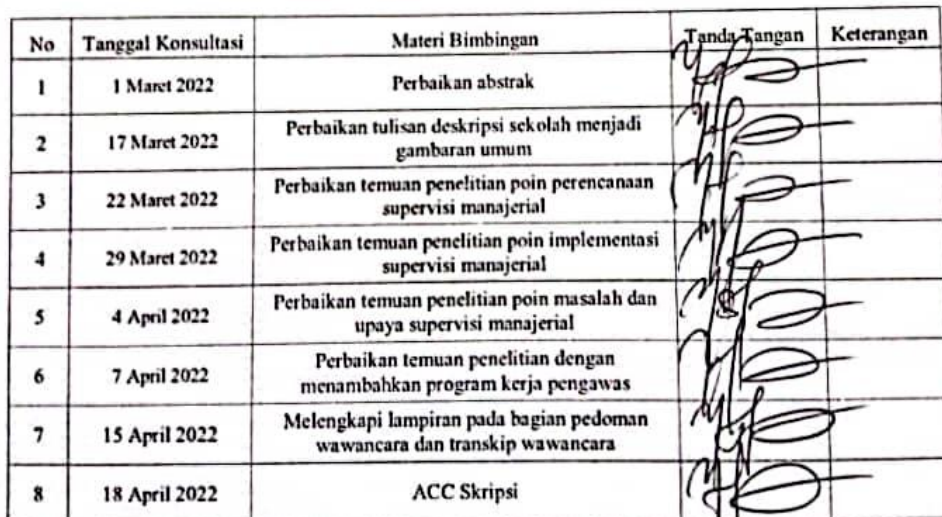 No Tanggal Konsultasi Materi Bimbingan Tanda Tangan Keterangan
1 1 Maret 2022 Perbaikan abstrak
2 17 Maret 2022 Perbaikan tulisan deskripsi sekolah menjadi
gambaran umum
3 22 Maret 2022 Perbaikan temuan penelitian poin perencanaan
supervisi manajerial
4 29 Maret 2022 Perbaikan temuan penelitian poin implementasi
supervisi manajerial
5 4 April 2022 Perbaikan temuan penelitian poin masalah dan
upaya supervisi manajerial
6 7 April 2022 Perbaikan temuan penelitian dengan
menambahkan program kerja pengawas
7 15 April 2022 Melengkapi lampiran pada bagian pedoman
wawancara dan transkip wawancara
8 18 April 2022 ACC Skripsi